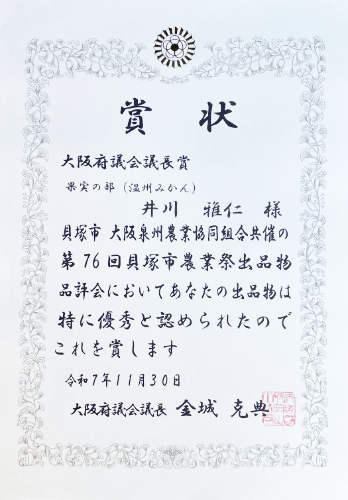 賞状
大阪府議会議長賞
果実の部（温州みかん）
井川 雅仁 様
貝塚市 大阪泉州農業協同組合共催の
第76回貝塚市農業祭出品物
品評会においてあなたの出品物は
特に優秀と認められたので
これを賞します
令和7年11月30日
大阪府議会議長 金城 克典